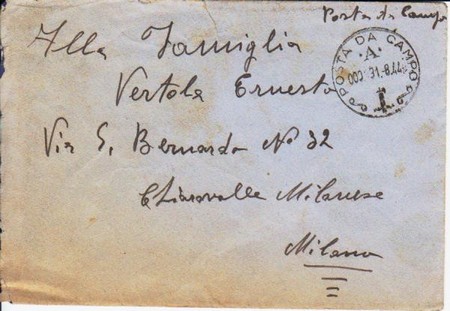 Posta da Campo
POSTA DA CAMPO
·A·
31.8.44
Alla Famiglia
Vertola Ernesto
Via S. Bernardo No 32
Chiaravalle Milanese
Milano